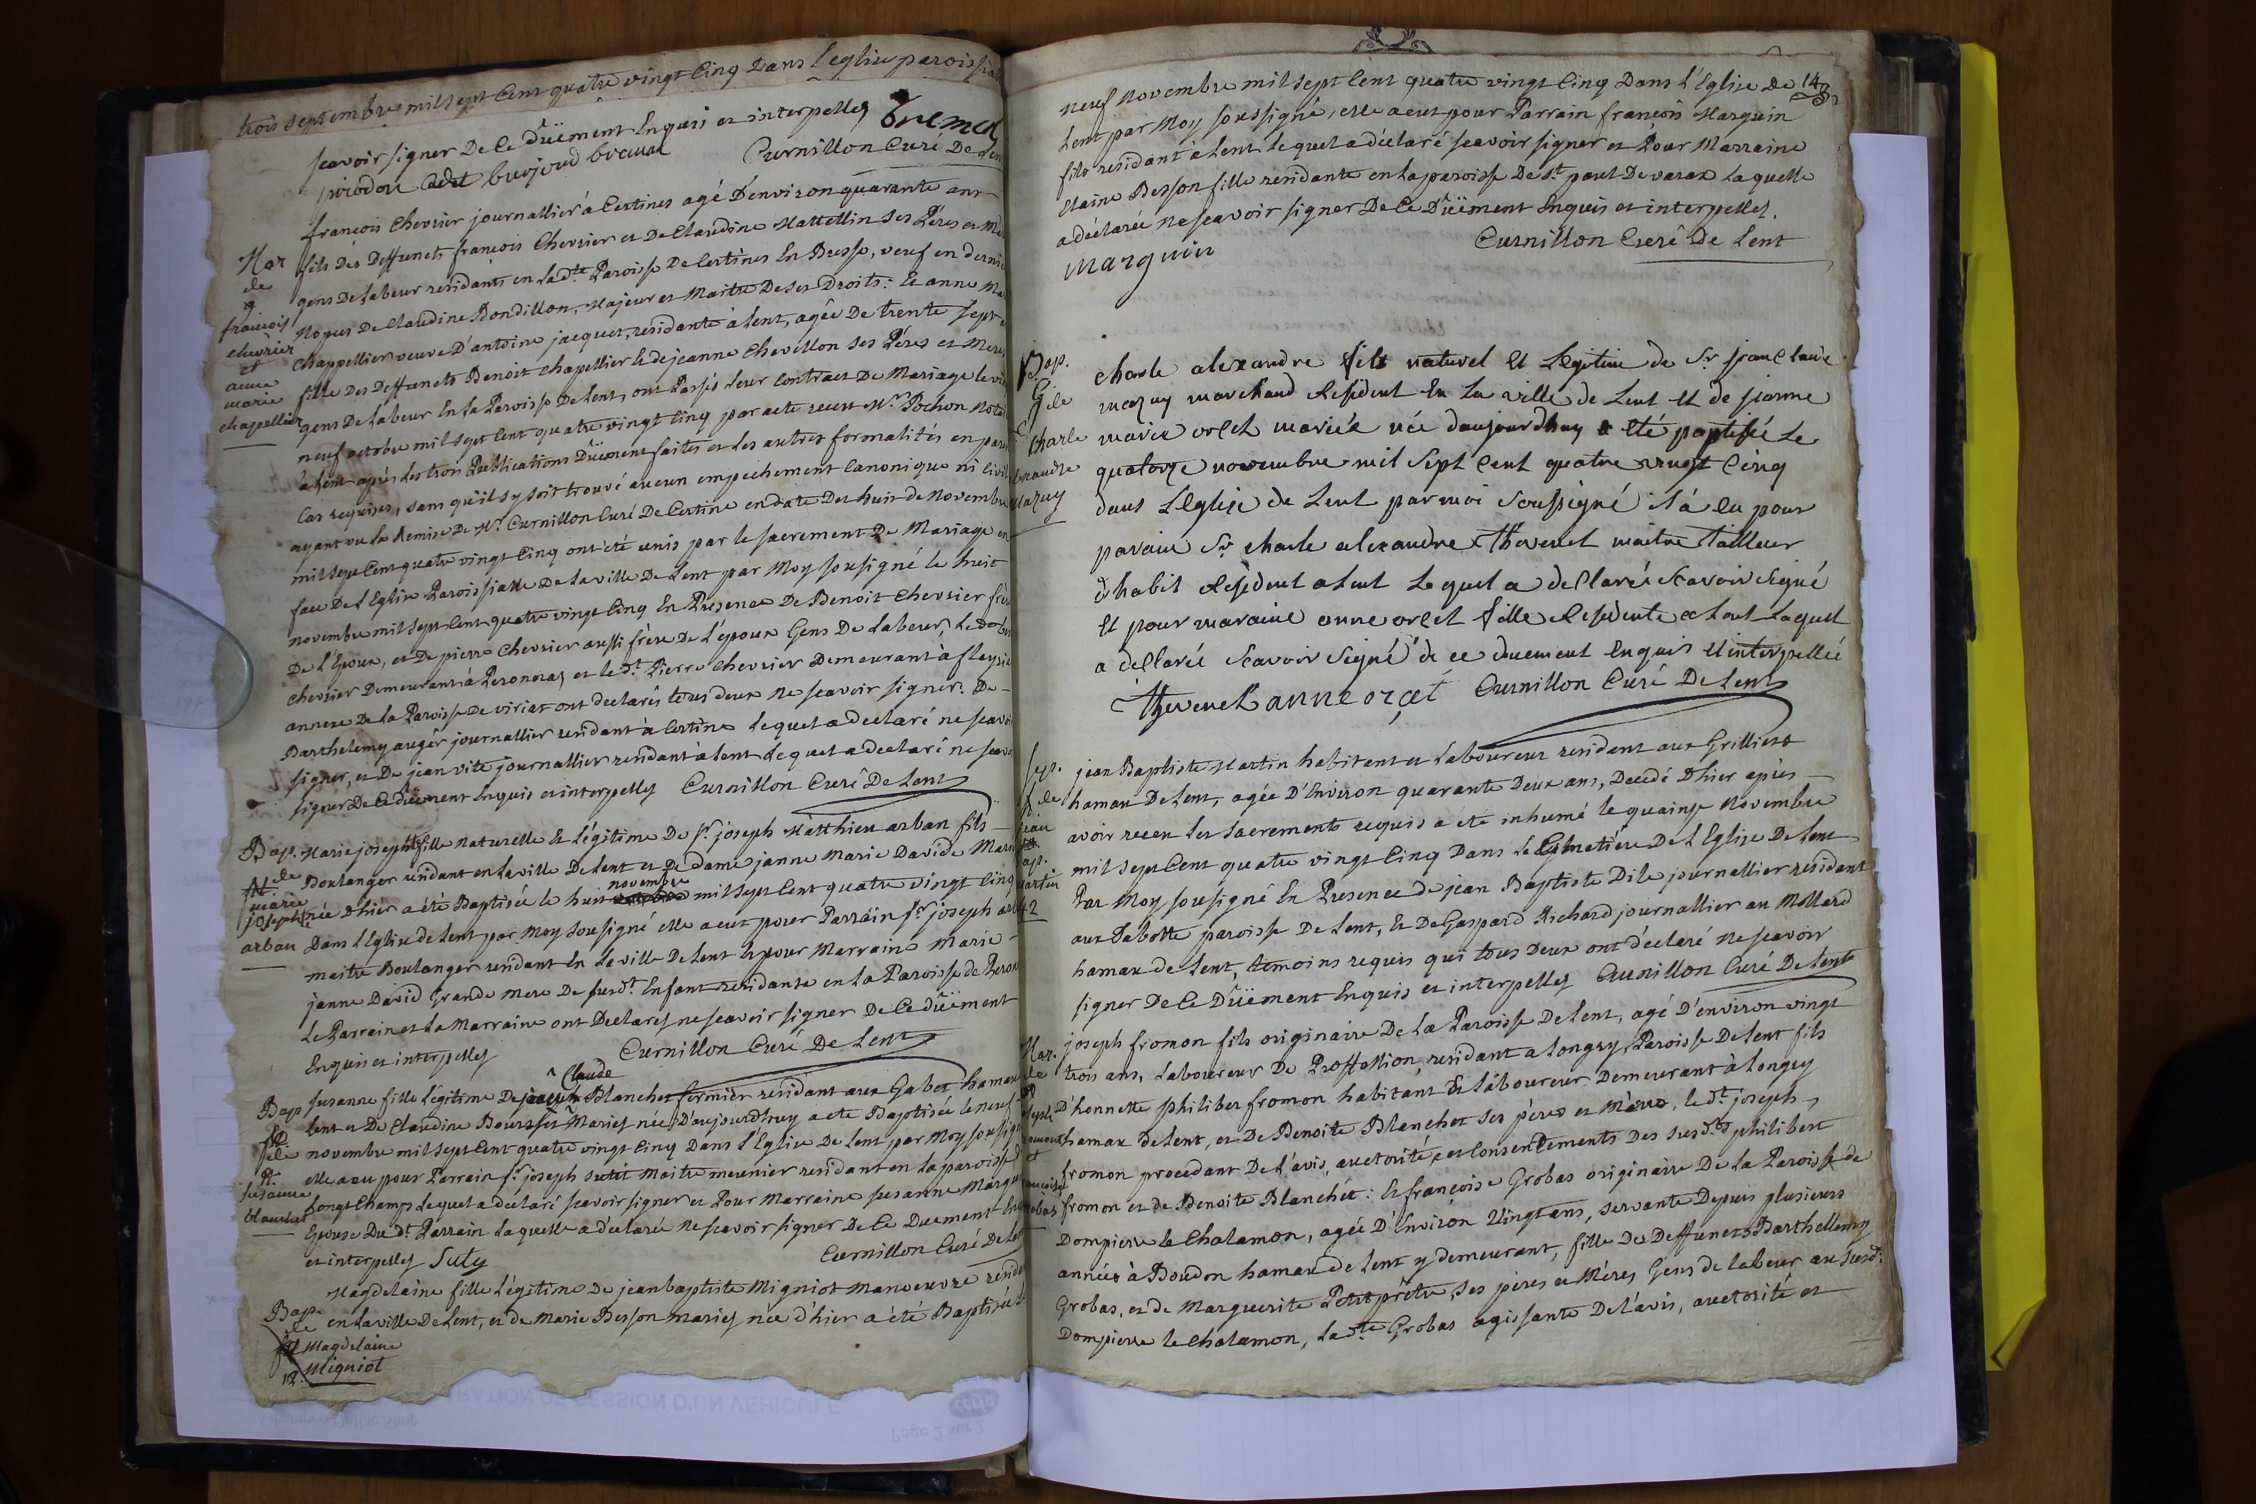 trois septembre mil sept Cent quatre vingt Cinq Dans l'eglise paroissiale
scavoir signer De Ce Düement Enquis et interpellés
pirodon bujoud breuat Curnillon Curé De Lent
Mar
de
françois
chevrier
et
anne
marie
chapellier
françois Chevrier journallier à Certines agé D'environ quarante ans
fils des deffuncts françois Chevrier et De Claudine Mattellin ses Pères et Mères
gens De Labeur residants en lad.te Paroisse De Certines En Bresse, veuf en dernières
Nopces De Claudine Bondillon, Majeur et Maitre De ses Droits: Et anne Marie
Chappellier veuve D'antoine jacquet, residante à Lent, agée De trente sept ans
fille Des Deffuncts Benoit Chapellier et de jeanne Chevillon ses Pères et Mères
gens De Labeur En la Paroisse De Lent, ont Passés leur Contract De Mariage le vingt
neuf octobre mil sept Cent quatre vingt Cinq par acte receu M.r Pochon Notaire
à Lent après les trois Publications Düement faites et les autres formalités en pareil
Cas requises, sans qu'il sy soit trouvé aucun empechement Canonique ni Civil
ayant vu la Remise De M.r Curnillon Curé De Certine en date Du huit de Novembre
mil sept Cent quatre vingt Cinq ont été unis par le sacrement De Mariage en
face De l'Eglise Paroissialle De la ville De Lent par Moy sousigné le huit
novembre mil sept Cent quatre vingt Cinq En Presence De Benoit Chevrier frère
De l'Epoux, et De pierre Chevrier aussi frère De l'époux Gens De Labeur, Led. benoit
Chevrier Demeurant à Peronnas et le d.t Pierre Chevrier Demeurant à fleyria
annexe De la Paroisse De viriat ont declarés tous deux ne scavoir signer. De
Barthelemy auger journallier residant à Certine lequel a declaré ne scavoir
signer, et De jean vite journallier residant à Lent Lequel a declaré ne scavoir
signer De Ce Düement Enquis et interpellés Curnillon Curé De Lent
Bap.
de
marie
josephte
arban
Marie josephte fille Naturelle Et Légitime De S.r joseph Matthieu arban fils
Boulanger residant en la ville De Lent et De Dame janne Marie Davide Mariés
née D'hier a été Baptisée le huit novembre mil sept Cent quatre vingt Cinq
Dans l'Eglise de Lent par Moy Sousigné elle a eut pour Parrain S.r joseph arban
maitre Boulanger residant En la ville De Lent et pour Marraine Marie
janne David Grande Mere De susd.t Enfant residante en la Paroisse de Peronnas
Le Parrain et la Marraine ont Declarés ne scavoir signer De Ce düement
Enquis et interpellés Curnillon Curé De Lent
Bap
de
susanne
blanchet
Claude
Susanne fille Légitime De Blanchet fermier residant aux Gabet hamau
Lent et De Claudine Bourssit Mariés née D'aujourdhuy a eté Baptisée le neuf
novembre mil sept Cent quatre vingt Cinq Dans l'Eglise De Lent par Moy sousigné
elle a eu pour Parrain S.r joseph Sutit Maitre meunier residant en la paroisse
Longchamps Lequel a declaré scavoir signer et Pour Marraine susanne Marguin
Epouse Du d.t Parrain Laquelle a declarée ne scavoir signer De Ce Duement Enquis
et interpellés Suty Curnillon Curé De Lent
Bap
de
Magdelaine
Migniot
Magdelaine fille Légitime De jean baptiste Migniot Manoeuvre residant
en la ville De Lent, et de Marie Besson mariés née d'hier a été Baptisée le
148
neuf Novembre mil sept Cent quatre vingt Cinq Dans l'Eglise De
Lent par Moy soussigné, elle a eut pour Parrain françois Marguin
fils residant à Lent, lequel a déclaré scavoir signer et Pour Marraine
Claine Besson fille residante en la paroisse De S.t paul De varax laquelle
a déclarée ne scavoir signer De Ce Düement Enquis et interpellés.
Marguin Curnillon Curé de Lent
Bap.
de
Charle
alexandre
Mazuy
charle alexandre fils naturel et Legitime de S.r jean claude
mazuy marchand Résident En La ville de Lent et de jeanne
marie orcet mariéé née daujourdhuy a eté baptisé Le
quatorze novembre mil sept cent quatre vingt Cinq
dans L'Eglise de Lent par moi Soussigné il a eu pour
parain S.r charle alexandre Thevenet maitre Tailleur
d'habit Résident a Lent Lequel a decllaré scavoir signé
et pour maraine anne orcet fille Residente a Lent Laquel
a decllaréé scavoir signé de ce duement enquis et interpelléé
Thevenet anne orçet Curnillon Curé De Lent
Sep.
de
jean
bap.
martin
42
jean Baptiste Martin habitent et Laboureur resident aux Grilliets
hamau De Lent, agée D'Environ quarante Deux ans, Decedé D'hier après
avoir receu les sacrements requis a été inhumé le quainze Novembre
mil sept Cent quatre vingt Cinq Dans le Cymetière De l'Eglise De Lent
Par Moy sousigné En Presence De jean Baptiste Dile journallier residant
aux Sabotte paroisse De Lent, et De Gaspard Richard journallier au Mollard
hamau de Lent, temoins requis qui tous Deux ont declaré ne scavoir
signer De Ce Düement Enquis et interpellés Curnillon Curé De Lent
Mar.
de
joseph
fromont
et
françoise
grobas
joseph fromon fils originaire De la Paroisse De Lent, agé D'environ vingt
trois ans, Laboureur De Proffession, residant a Longry Paroisse De Lent fils
D'honnette Philibert fromon habitant Et Laboureur Demeurant à Longry
hamau de Lent, et De Benoite Blanchet ses pères et Mères, le d.t joseph
fromon procedant De l'avis, auctorité et Consentements Des sus d.ts philibert
fromon et de Benoite Blanchet: Et françoise Grobas originaire De la Paroisse de
Dompierre le Chalamon, agée D'Environ Vingt ans, servante Depuis plusieurs
années à Boudon hamau de Lent y demeurant, fille Des Deffuncts Barthellemy
Grobas, et de Marguerite Petitprêtre, ses pères et Mères Gens de labeur au susd.t
Dompierre le Chalamon, lad.te Grobas agissante De l'avis, auctorité et